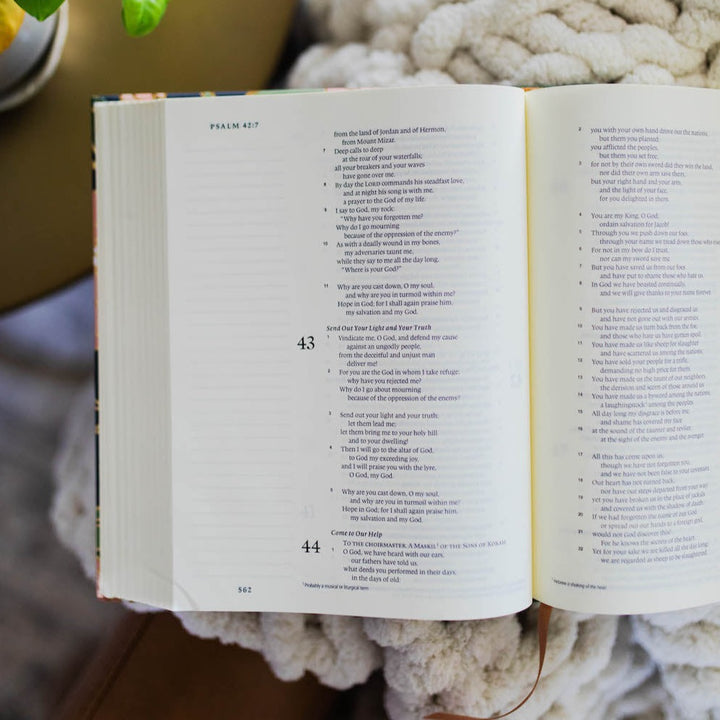 PSALM 42:7
from the land of Jordan and of Hermon,
from Mount Mizar.
7 Deep calls to deep
at the roar of your waterfalls;
all your breakers and your waves
have gone over me.
8 By day the LORD commands his steadfast love,
and at night his song is with me,
a prayer to the God of my life.
9 I say to God, my rock:
"Why have you forgotten me?
Why do I go mourning
because of the oppression of the enemy?"
10 As with a deadly wound in my bones,
my adversaries taunt me,
while they say to me all the day long,
"Where is your God?"
11 Why are you cast down, O my soul,
and why are you in turmoil within me?
Hope in God; for I shall again praise him,
my salvation and my God.
Send Out Your Light and Your Truth
43 1 Vindicate me, O God, and defend my cause
against an ungodly people,
from the deceitful and unjust man
deliver me!
2 For you are the God in whom I take refuge;
why have you rejected me?
Why do I go about mourning
because of the oppression of the enemy?
3 Send out your light and your truth;
let them lead me;
let them bring me to your holy hill
and to your dwelling!
4 Then I will go to the altar of God,
to God my exceeding joy,
and I will praise you with the lyre,
O God, my God.
5 Why are you cast down, O my soul,
and why are you in turmoil within me?
Hope in God; for I shall again praise him,
my salvation and my God.
Come to Our Help
44 TO THE CHOIRMASTER. A MASKIL¹ OF THE SONS OF KORAH.
1 O God, we have heard with our ears,
our fathers have told us,
what deeds you performed in their days,
in the days of old:
¹ Probably a musical or liturgical term
562
2 you with your own hand drove out the nations,
but them you planted;
you afflicted the peoples,
but them you set free;
3 for not by their own sword did they win the land,
nor did their own arm save them,
but your right hand and your arm,
and the light of your face,
for you delighted in them.
4 You are my King, O God;
ordain salvation for Jacob!
5 Through you we push down our foes;
through your name we tread down those who
6 For not in my bow do I trust,
nor can my sword save me.
7 But you have saved us from our foes
and have put to shame those who hate us.
8 In God we have boasted continually,
and we will give thanks to your name forever.
9 But you have rejected us and disgraced us
and have not gone out with our armies.
10 You have made us turn back from the foe,
and those who hate us have gotten spoil.
11 You have made us like sheep for slaughter
and have scattered us among the nations.
12 You have sold your people for a trifle,
demanding no high price for them.
13 You have made us the taunt of our neighbors,
the derision and scorn of those around us.
14 You have made us a byword among the nations,
a laughingstock¹ among the peoples.
15 All day long my disgrace is before me,
and shame has covered my face
16 at the sound of the taunter and reviler,
at the sight of the enemy and the avenger.
17 All this has come upon us,
though we have not forgotten you,
and we have not been false to your covenant.
18 Our heart has not turned back,
nor have our steps departed from your way;
19 yet you have broken us in the place of jackals
and covered us with the shadow of death.
20 If we had forgotten the name of our God
or spread out our hands to a foreign god,
21 would not God discover this?
For he knows the secrets of the heart.
22 Yet for your sake we are killed all the day long;
we are regarded as sheep to be slaughtered.
¹ Hebrew a shaking of the head